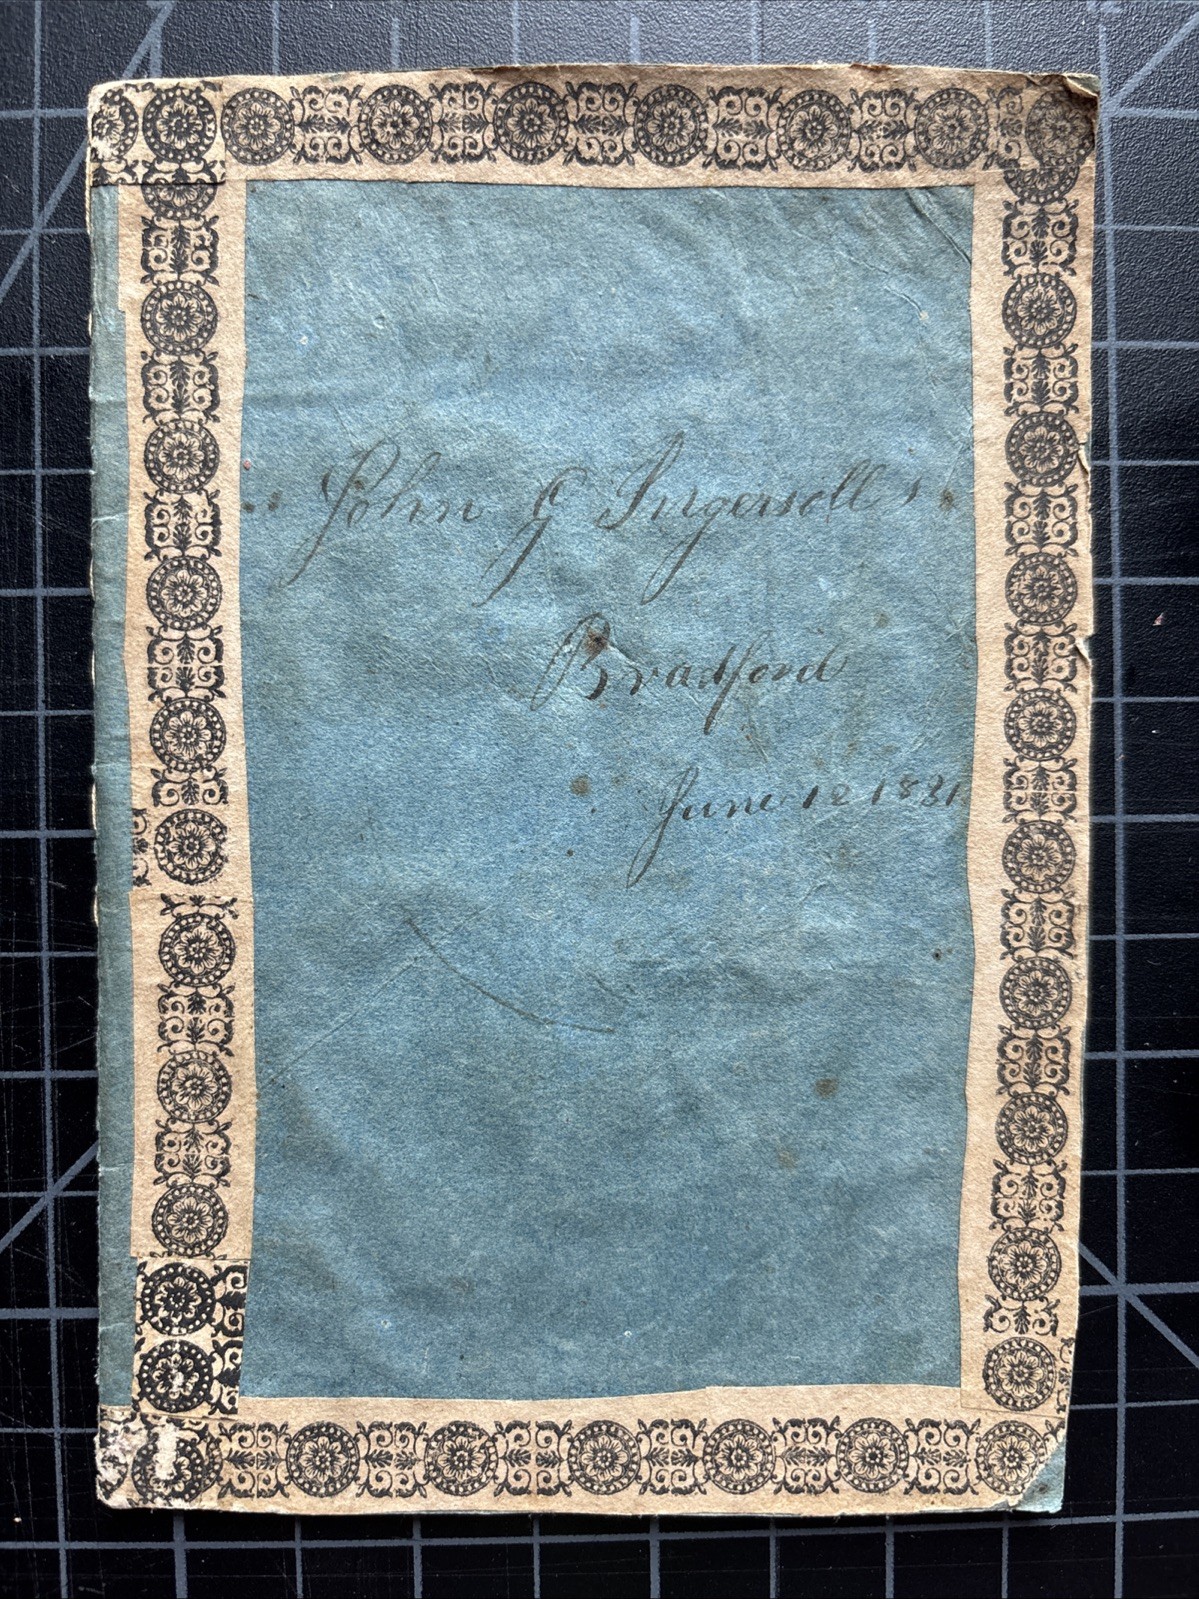 John G Ingersoll's
Bradford
June 12 1831